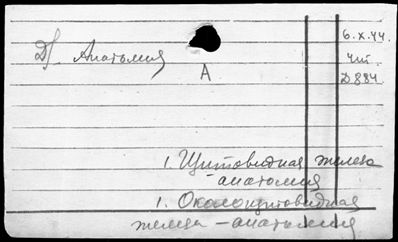 6.X.44.
Д/ Анатомия
Чит.
Д884
А
1. Щитовидная железа
- анатомия
1. Околощитовидная
железа - анатомия